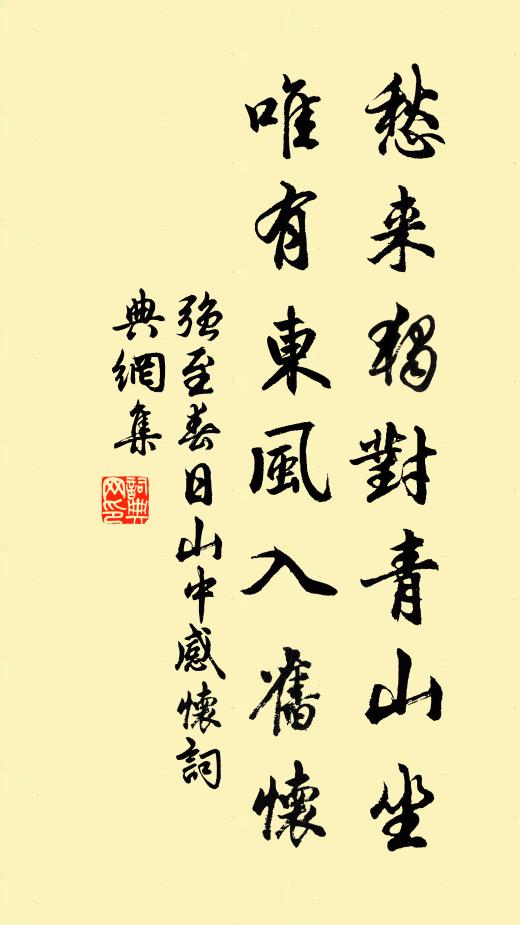 愁来獨對青山坐
唯有東風入舊懷
强至春日山中感懷詞
典網集
詞典网印